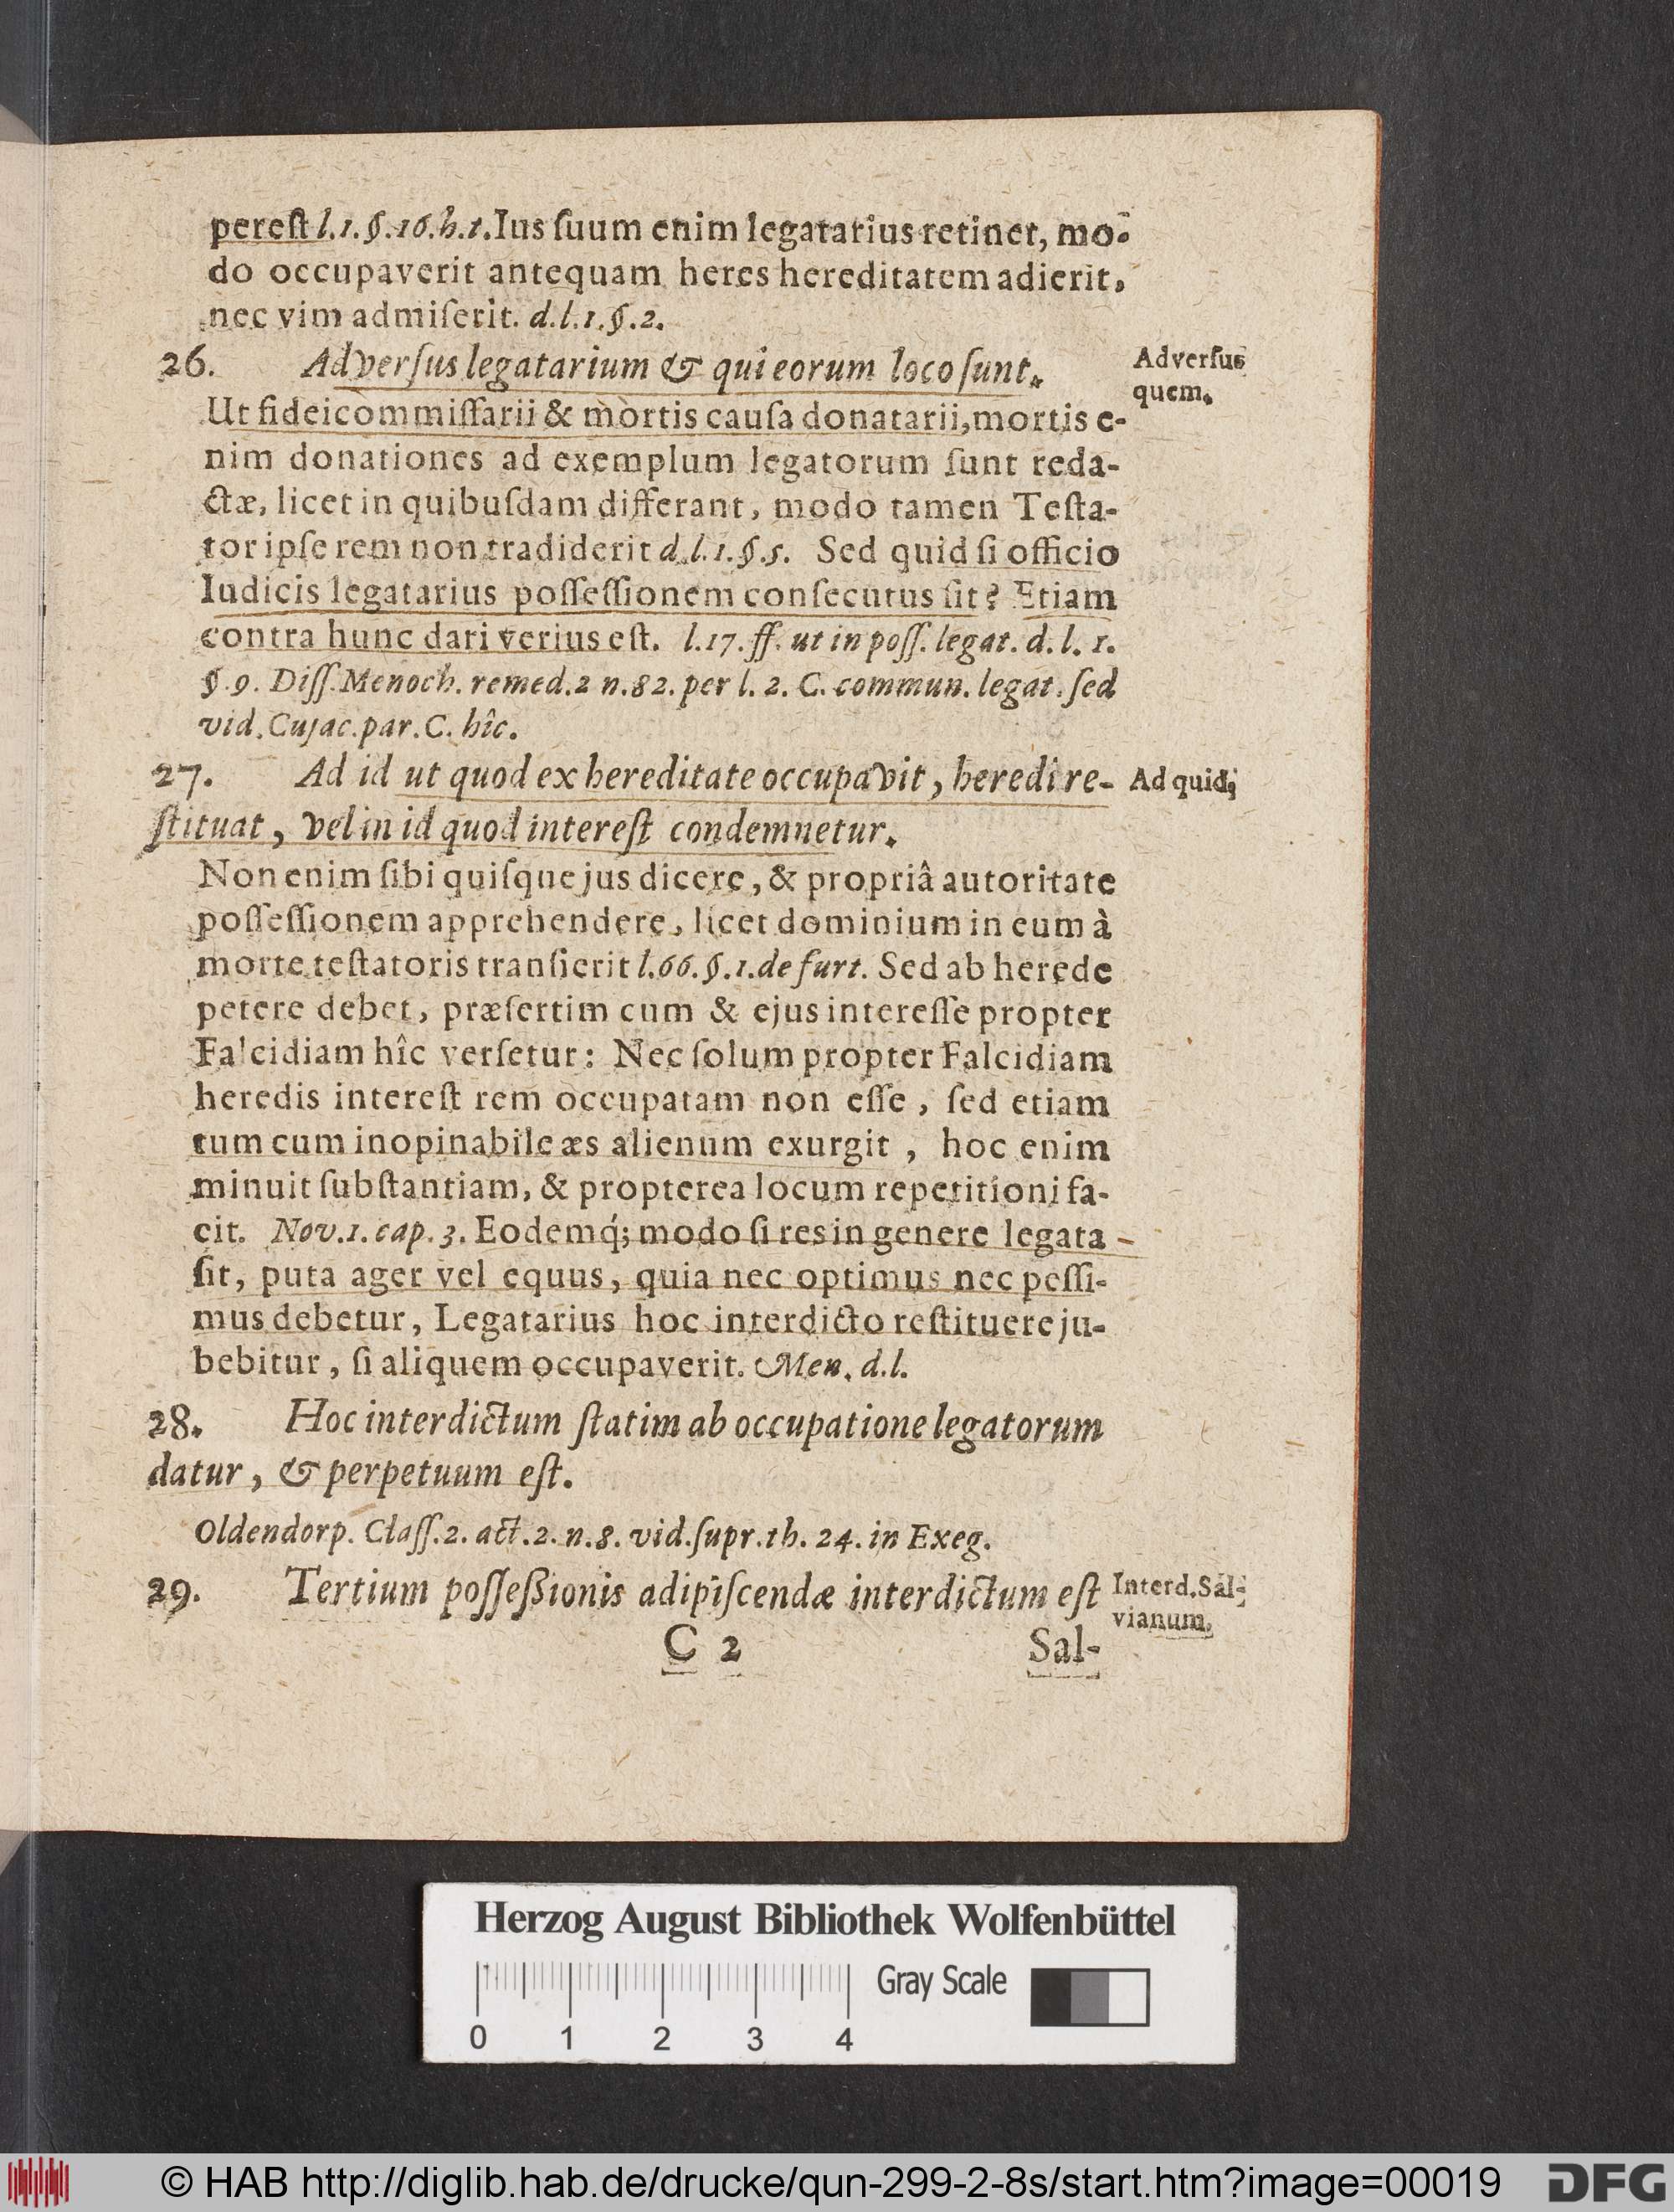 pereſt l.1.§.16.h.t. Ius ſuum enim legatarius retinet, mo-
do occupaverit antequam heres hereditatem adierit,
nec vim admiſerit. d.l.1.§.2.
26. Adverſus legatarium & qui eorum loco ſunt.
Adverſus
quem.
Ut fideicommiſſarii & mortis cauſa donatarii, mortis e-
nim donationes ad exemplum legatorum ſunt reda-
ctæ, licet in quibuſdam differant, modo tamen Teſta-
tor ipſe rem non tradiderit d.l.1.§.5. Sed quid ſi officio
Iudicis legatarius poſſeſſionem conſecutus ſit? Etiam
contra hunc dari verius eſt. l.17. ff. ut in poſſ. legat. d. l. 1.
§.9. Diſſ. Menoch. remed.2 n.82. per l. 2. C. commun. legat. ſed
vid. Cujac. par. C. hîc.
27. Ad id ut quod ex hereditate occupavit, heredi re-
Ad quid;
ſtituat, vel in id quod intereſt condemnetur.
Non enim ſibi quiſque jus dicere, & propriâ autoritate
poſſeſſionem apprehendere, licet dominium in eum à
morte teſtatoris tranſierit l.66.§.1. de furt. Sed ab herede
petere debet, præſertim cum & ejus intereſſe propter
Falcidiam hîc verſetur: Nec ſolum propter Falcidiam
heredis intereſt rem occupatam non eſſe, ſed etiam
tum cum inopinabile æs alienum exurgit, hoc enim
minuit ſubſtantiam, & propterea locum repetitioni fa-
cit. Nov.1. cap. 3. Eodemq́; modo ſi res in genere legata
ſit, puta ager vel equus, quia nec optimus nec peſſi-
mus debetur, Legatarius hoc interdicto reſtituere ju-
bebitur, ſi aliquem occupaverit. Men. d.l.
28. Hoc interdictum ſtatim ab occupatione legatorum
datur, & perpetuum eſt.
Oldendorp. Claſſ.2. act.2. n.8. vid. ſupr. th. 24. in Exeg.
29. Tertium poſſeßionis adipiſcendæ interdictum eſt
Interd. Sal-
vianum.
C 2 Sal-
Herzog August Bibliothek Wolfenbüttel
Gray Scale
0 1 2 3 4
© HAB http://diglib.hab.de/drucke/qun-299-2-8s/start.htm?image=00019
DFG